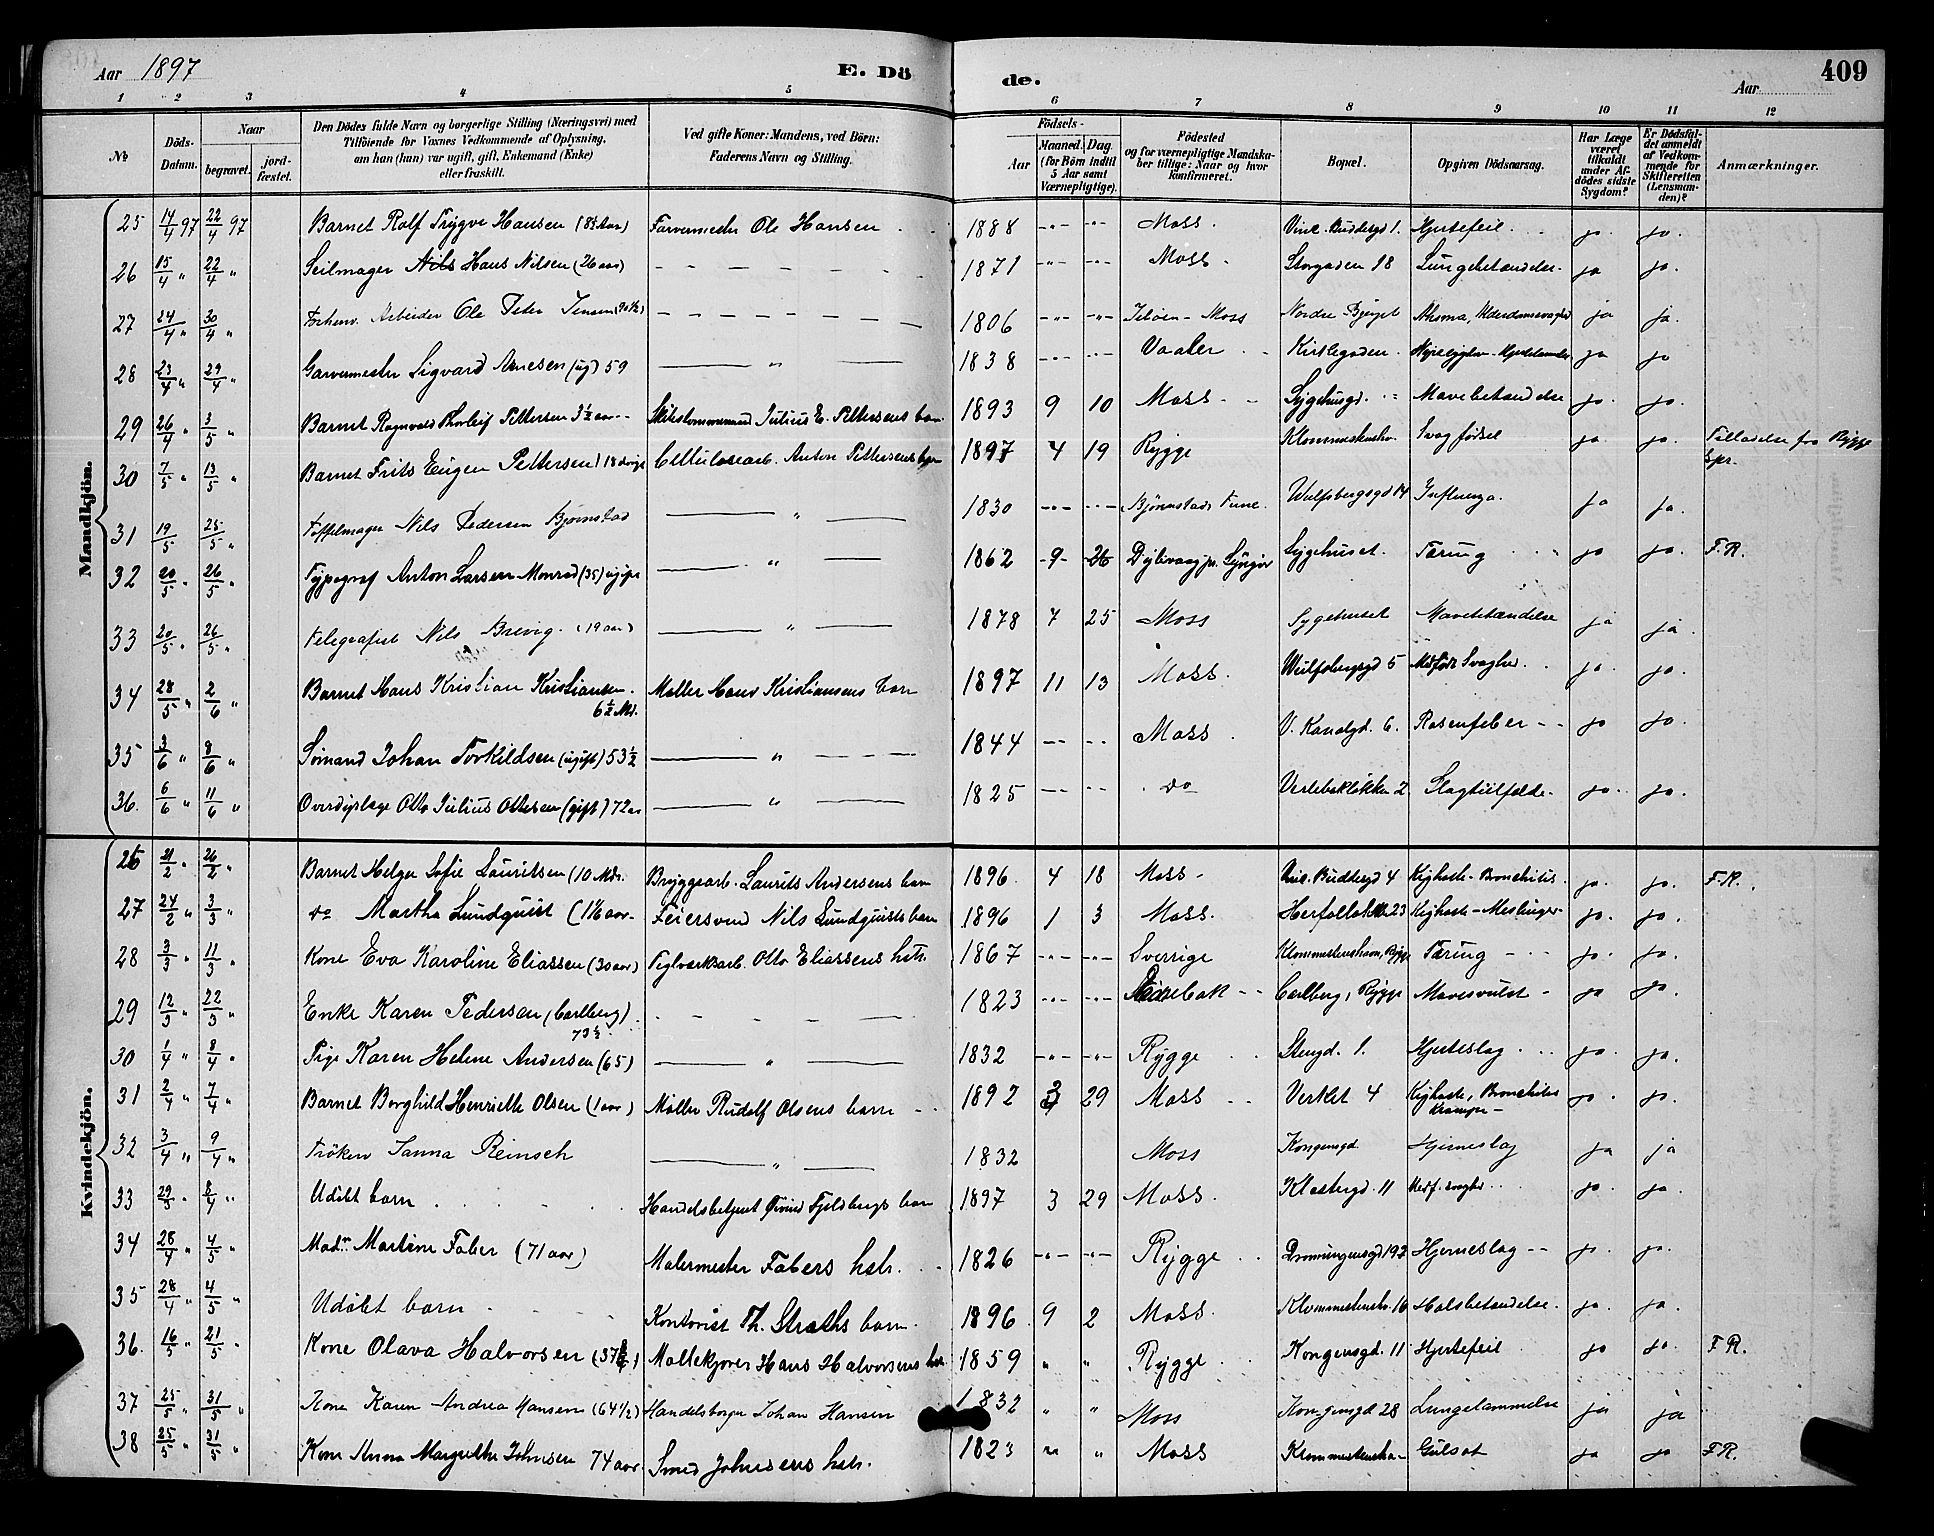 Aar 1897 E. Dö de. Aar 409
1 2 3 4 5 6 7 8 9 10 11 12
№ Döds-Datum. Naar begravet. jordfæstet. Den Dödes fulde Navn og borgerlige Stilling (Næringsvei) med Tilföiende for Voxnes Vedkommende af Oplysning, om han (hun) var ugift, gift, Enkemand (Enke) eller fraskilt. Ved gifte Koner: Mandens, ved Börn: Faderens Navn og Stilling. Födsels- Aar Maaned. Dag (for Börn indtil 5 Aar samt Værnepligtige). Födested og for værnepligtige Mandskaber tillige: Naar og hvor konfirmeret. Bopæl. Opgiven Dödsaarsag. Har Læge været tilkaldt under Afdödes sidste Sygdom? Er Dödsfaldet anmeldt af Vedkommende for Skifteretten (Lensmanden)? Anmærkninger.
Mandkjön.
25 14/4 97 22/4 97 Barnet Rolf Trygve Hansen (8½ Aar) Farvermester Ole Hansen 1888 -"- -"- Moss. Vinc. Buddesgd 1. Hjertefeil. ja. ja.
26 15/4 " 22/4 " Seilmager Nils Hans Nilsen (26 aar) 1871 -"- -"- Moss. Storgaden 18 Lungebetændelse. ja ja.
27 24/4 " 30/4 " Forhenv. Arbeider Ole Peter Jensen (90½) 1806 -"- -"- Jelöen - Moss Nordre Bjerget Alderdomssvaghed ja ja.
28 23/4 " 29/4 " Garvermester Sigvard Arnesen (ug) 59 " 1838 -"- -"- Vaaler Kirkegaden. ja ja
29 26/4 " 3/5 " Barnet Ragnvald Thorleif Pettersen 3½ aar Julius E. Pettersens barn 1893 9 10 Moss Sygehusgd. Mavebetændelse ja. ja.
30 7/5 " 13/5 " Barnet Frits Eugen Pettersen (18 dage) Cellulosearb. Anton Pettersens barn 1897 4 19 Rygge Klommestenshv. Svag födsel ja ja. Tilladelse fra Rygge Spr.
31 19/5 25/5 " Töffelmager Nils Pedersen Bjørnstad " 1830 -"- -"- Bjørnstad, Tune. Wulfsbergsgd 14 Influenza. ja ja.
32 20/5 " 26/5 " Typograf Anton Larsen Monrad (35) ugift " 1862 -9- 26 Lyngör Sygehuset. Tæring ja ja. F.R.
33 20/5 " 26/5 " Telegrafist Nils Brevig. (19 aar) " 1878 4 25 Moss Sygehuset Mavebetændelse ja ja.
34 28/5 " 2/6 " Barnet Hans Kristian Kristiansen. 6½ Md. Møller Hans Kristiansens barn 1897 11 13 Moss. Wulfsbergsgd 5 Medfödt Svaghed ja. ja.
35 3/6 " 8/6 " Sømand Johan Torkildsen (ugift) 53½ " 1844 -- -- Moss. V. Kanalgd. 6. Rosenfeber ja ja.
36. 6/6 " 11/6 " Otto Julius Ottesen (gift) 72 aar " 1825 -- -- do Verlebakløkken 2 Slagtilfælde. ja. ja.
Kvindekjön.
26 21/2 " 26/2 " Barnet Helga Sofie Lauritsen (10 Mdr. Bryggearb. Laurits Andersens barn 1896. 4 18 Moss Vinc. Buddesgd 4 Kighoste - Bronchitis. ja. ja. F.R.
27 24/2 " 3/3 " do Martha Lundquist (1 1/6 aar Feiersvend Nils Lundquists barn 1896 1 3 Moss. 23 Kighoste - Meslinger ja. ja.
28 3/3 " 11/3 " Kone Eva Karoline Eliassen (30 aar) Teglverksarb. Otto Eliassens hstr. 1867 -"- -"- Sverrige Klommestenshavn, Rygge Tæring ja. ja.
29 12/3 " 22/3 " Enke Karen Pedersen (Carlberg) 73½ 1823 -"- -"- Carlberg, Rygge Mavesvulst ja ja.
30 1/4 " 8/4 " Pige Karen Helene Andersen (65) " 1832 -"- -"- Rygge Stengd. 1. Hjerteslag ja. ja.
31 2/4 " 7/4 " Barnet Borghild Henriette Olsen (1 aar) Møller Rudolf Olsens barn 1892 3 29 Moss Verket 4 Kighoste, Bronchitis Krampe ja. ja.
32 3/4 " 9/4 " Frøken Janna Reinsch " 1832 Moss Kongensgd Hjerneslag ja ja
33 29/3 " 8/4 " Udöbt barn Handelsbetjent Öivind Fjeldbergs barn 1897 3 29 Moss. Klostergd. 11 Medf. svaghed ja. ja.
34 28/4 " 4/5 " Mad. Martine Faber (71 aar) Malermester Fabers hstr. 1826 -"- -"- Rygge Dronningensgd 19 Hjerneslag -- ja. ja.
35 28/4 " 4/5 " Udöbt barn Kontorist Th. Straths barn. 1896 9 2 Moss. Klommestenshv. 16 Halsbetændelse. ja. ja.
36. 16/5 " 21/5 " Kone Olava Halvorsen (37) Møllekjører Hans Halvorsens hstr. 1859 " " Rygge Kongensgd. 11 Hjertefeil ja ja. F.R.
37 25/5 " 31/5 " Kone Karen Andrea Hansen (64½) Handelsborger Johan Hansen 1832 " " Moss Kongensgd 28 Lungelammelse ja ja
38 25/5 " 31/5 " Kone Anna Margrethe Johnsen 74 aar Smed Johnsens hstr. 1823 " " Moss Klommestensha- Gulsot ja ja F.R.